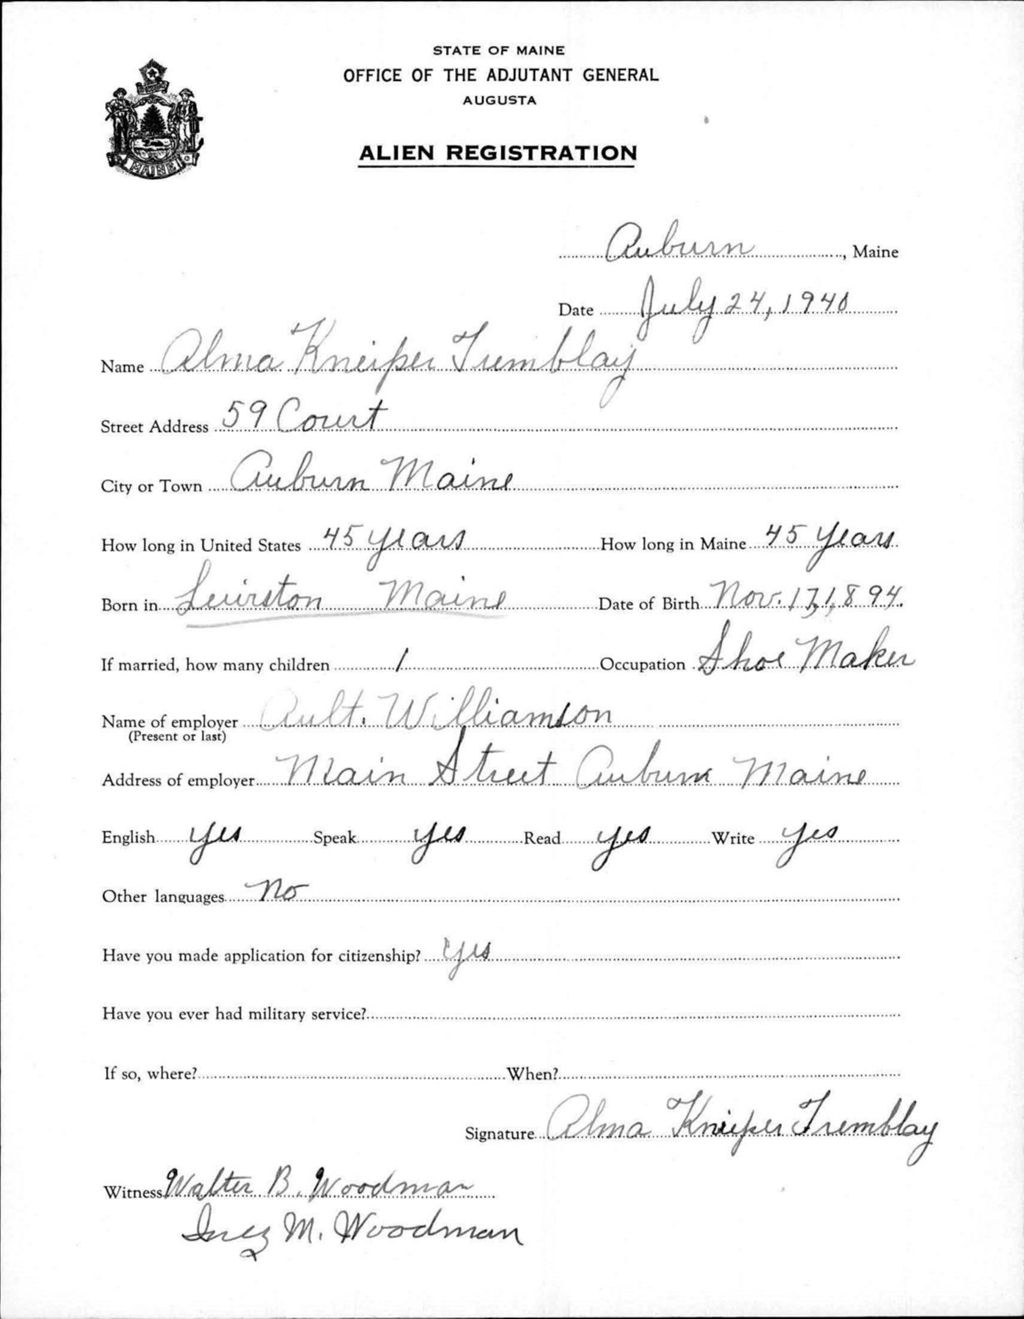 STATE OF MAINE
OFFICE OF THE ADJUTANT GENERAL
AUGUSTA
ALIEN REGISTRATION
MAINE
Auburn, Maine
Date July 24, 1940
Name Alma Kneiper Tremblay
Street Address 59 Court
City or Town Auburn Maine
How long in United States 45 years How long in Maine 45 years
Born in Lewiston Maine Date of Birth Nov. 17, 1894.
If married, how many children 1 Occupation Shoe Maker
Name of employer Ault. Williamson
(Present or last)
Address of employer Main Street Auburn Maine
English yes Speak yes Read yes Write yes
Other languages No
Have you made application for citizenship? yes
Have you ever had military service?
If so, where? When?
Signature Alma Kneiper Tremblay
Witness Walter B. Woodman
Inez M. Woodman